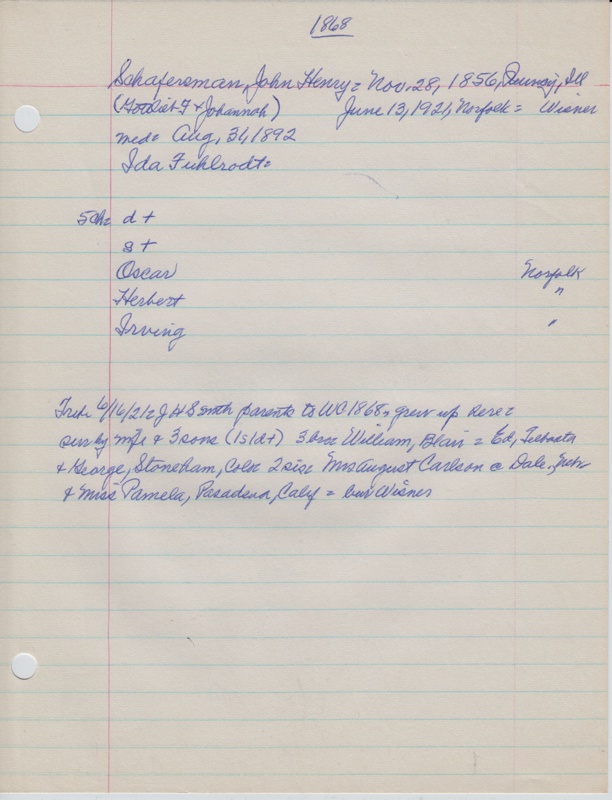 1868
Schafersman, John Henry = Nov. 28, 1856, Quincy, Ill
(Gottlieb F + Johannah) June 13, 1921, Norfolk = Wisner
med = Aug, 31, 1892
Ida Fuhlrodt =
5 Ch = d +
s +
Oscar Norfolk
Herbert "
Irving "
Trib 6/16/21 = J H S with parents to WC 1868 = grew up here =
sur by wife & 3 sons (1s 1d+) 3 bro = William, Blair = Ed,
& George, Stoneham, Colo = 2 sis = Mrs August Carlson @ Dale, Nebr
& Miss Pamela, Pasadena, Calif = bur Wisner